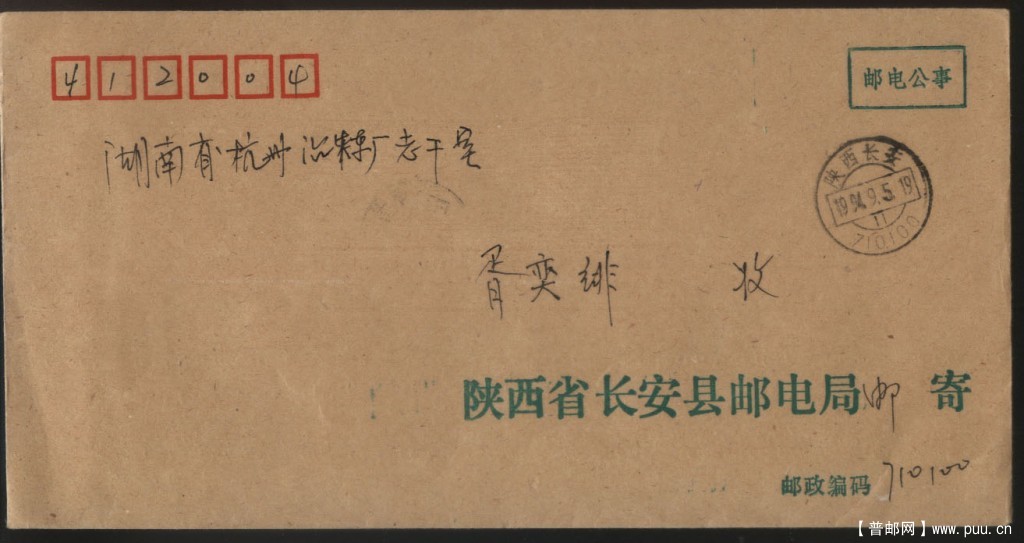 412004
邮电公事
湖南省株州冶炼厂老干室
陕西长安
1994.9.5.19
11
710100
胥奕绯 收
陕西省长安县邮电局邮寄
邮政编码 710100
【普邮网】www.puu.cn